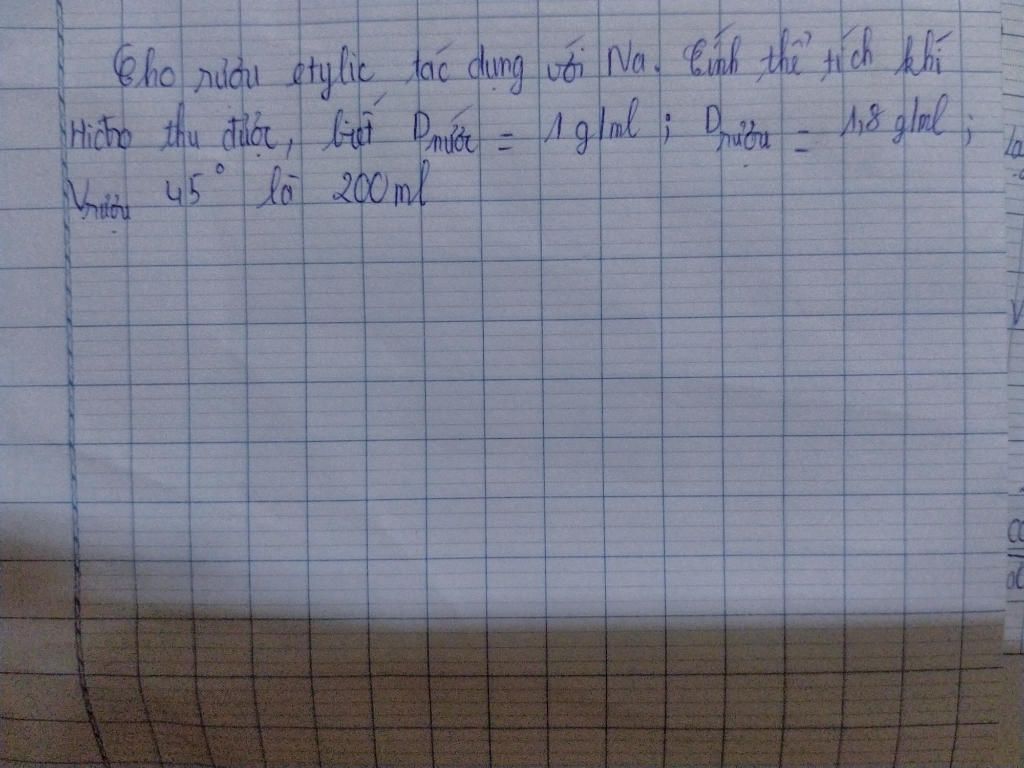 Cho rượu etylic tác dụng với Na. Tính thể tích khí
Hiđro thu được, biết Dnước = 1 g/ml ; Drượu = 1,8 g/ml ;
Vrượu 45° là 200 ml